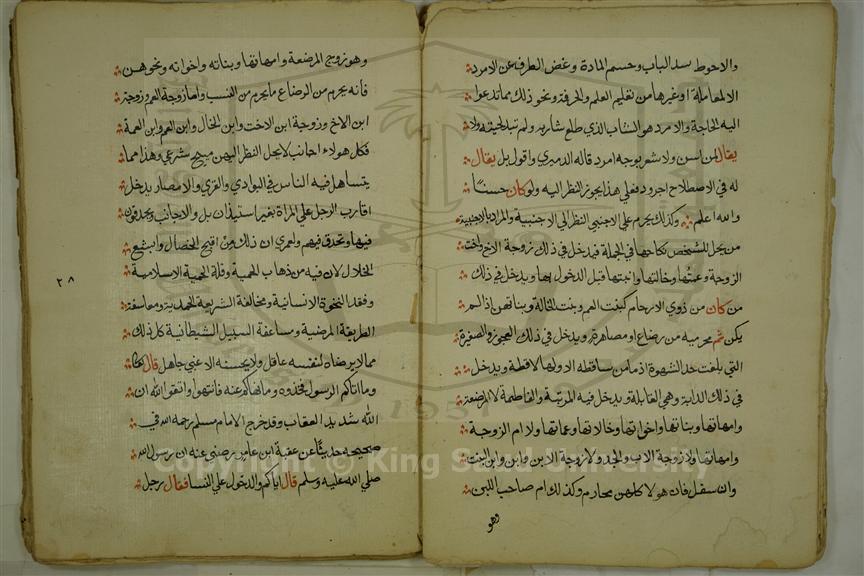 والاحوط سد الباب وحسم المادة وغض الطرف عن الامرد
الا لمعاملة او غيرها من تعليم العلم والحرفة ونحو ذلك مما تدعوا
اليه الحاجة والامرد هو الشاب الذي طلع شاربه ولم تبد لحيته ولا
يقال لمن اسن ولا شعر بوجهه امرد قاله الدميري واقول بل يقال
له في الاصطلاح اجرود فعلي هذا يجوز النظر اليه ولو كان حسنا
والله اعلم وكذلك يحرم علي الاجنبي النظر الي الاجنبية والمراد بالاجنبية
من يحل للشخص نكاحها في الجملة فيدخل في ذلك زوجة الاخ واخت
الزوجة وعمتها وخالتها وابنتها قبل الدخول بها ويدخل في ذلك
من كان من ذوي الارحام كبنت العم وبنت الخالة وبناتهن اذا لم
يكن ثم محرمية من رضاع او مصاهرة ويدخل في ذلك العجوز والصغيرة
التي بلغت حد الشهوة اذ ما من ساقطة الا ولها لاقطة ويدخل
في ذلك الداية وهي القابلة ويدخل فيه المربية والفاطمة لا المرضعة
وامهاتها وبناتها واخواتها وخالاتها وعماتها ولا ام الزوجة
وامهاتها ولا زوجة الاب والجد ولا زوجة الابن وابن وابن البنت
وان سفل فان هولا كلهن محارم وكذلك ام صاحب اللبن
وهو
وهو زوج المرضعة وامهاتها وبناته واخواته ونحوهن
فأنه يحرم من الرضاع ما يحرم من النسب واما زوجة العم وزوجة
ابن الاخ وزوجة ابن الاخت وابن الخال وابن العم وابن العمة
فكل هولاء اجانب لا يحل النظر اليهن مبيح شرعي وهذا مما
يتساهل فيه الناس في البوادي والقري والامصار يدخل
اقارب الرجل علي المراة بغير استيذان بل والاجانب ويحدقون
فيها وتحدق فيهم ولعمري ان ذلك من اقبح الخصال وابشع
الخلال لان فيه من ذهاب الحمية وقلة الحمية الاسلامية
وفقد النخوة الانسانية ومخالفة الشريعة المحمدية ومعاسفة
الطريقة المرضية ومساعفة السبيل الشيطانية كل ذلك
مما لا يرضاه لنفسه عاقل ولا يحسنه الا غبي جاهل قال تعالى
وما اتاكم الرسول فخذوه وما نهاكم عنه فانتهوا واتقوا الله ان
الله شديد العقاب وقد خرج الامام مسلم رحمه الله في
صحيحه حديثا عن عقبة ابن عامر رضي عنه ان رسول الله
صلي الله عليه وسلم قال اياكم والدخول علي النسا فقال رجل
٢٨
Copyright © King Saud University
1957